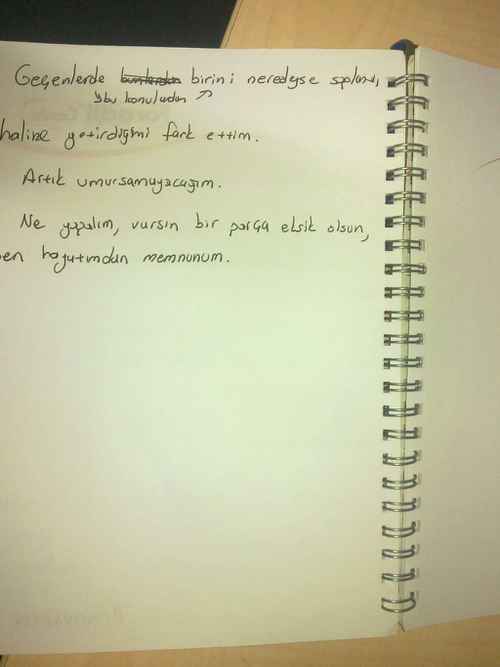 Geçenlerde birini neredeyse saplantı
bu konulardan
haline getirdiğimi fark ettim.
Artık umursamayacağım.
Ne yapalım, varsın bir parça eksik olsun,
ben hayatımdan memnunum.